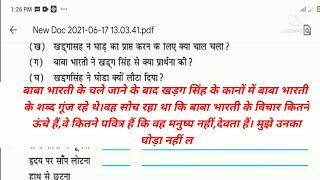 1:26 PM
New Doc 2021-06-17 13.03.41.pdf
(ख) खड्गसिंह ने घोड़े को प्राप्त करने के लिए क्या चाल चली?
(ग) बाबा भारती ने खड्ग सिंह से क्या प्रार्थना की?
(घ) खड्गसिंह ने घोड़ा क्यों लौटा दिया?
बाबा भारती के चले जाने के बाद खड़ग सिंह के कानों में बाबा भारती
के शब्द गूंज रहे थे।वह सोच रहा था कि बाबा भारती के विचार कितने
ऊंचे हैं,वे कितने पवित्र हैं कि वह मनुष्य नहीं,देवता हैं। मुझे उनका
घोड़ा नहीं ल
हृदय पर साँप लोटना
हाथ से छूटना